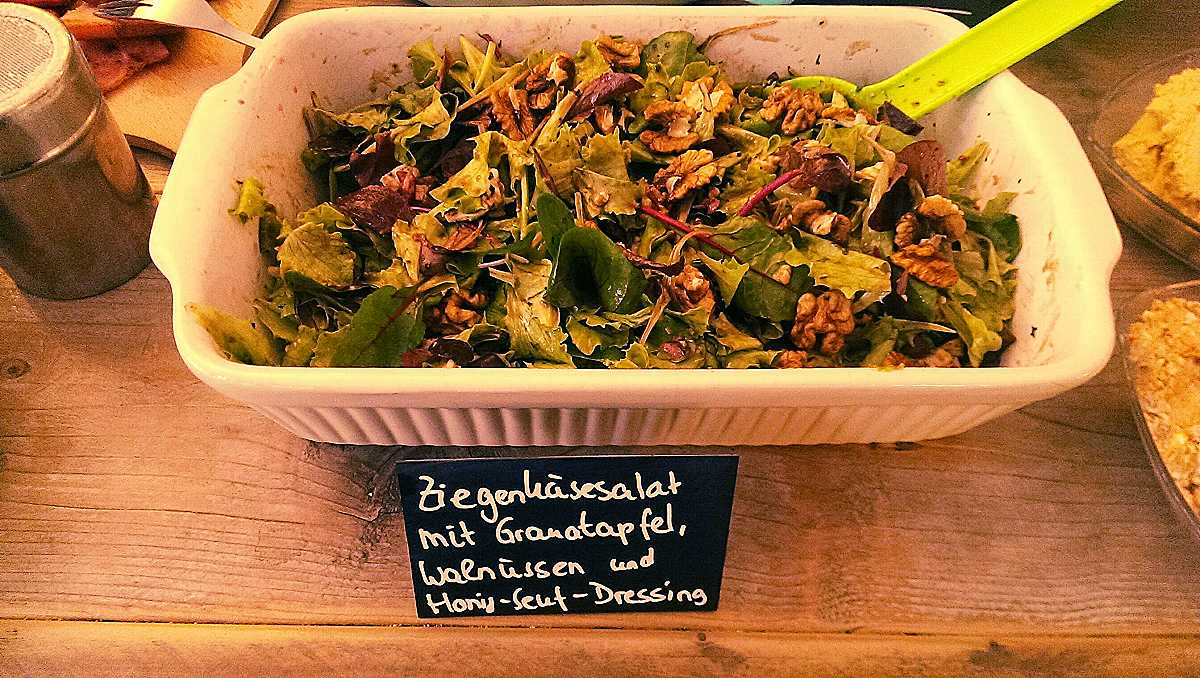 Ziegenkäsesalat
mit Granatapfel,
Walnüssen und
Honig-Senf-Dressing